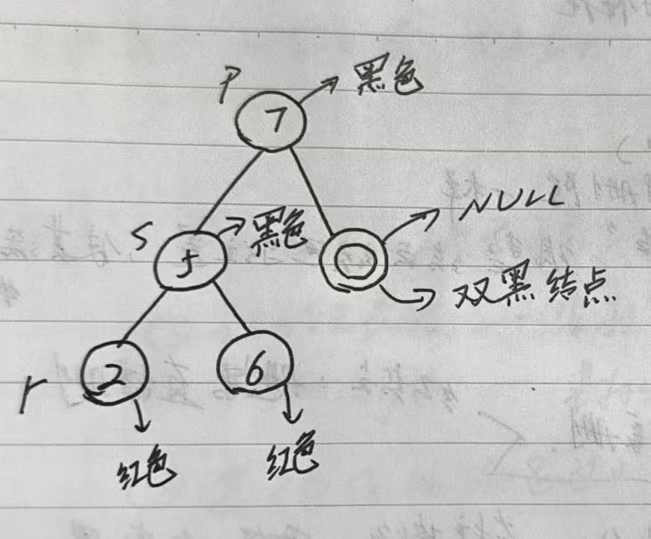 P
黑色
7
S
黑色
5
NULL
双黑结点
r
2
6
红色
红色